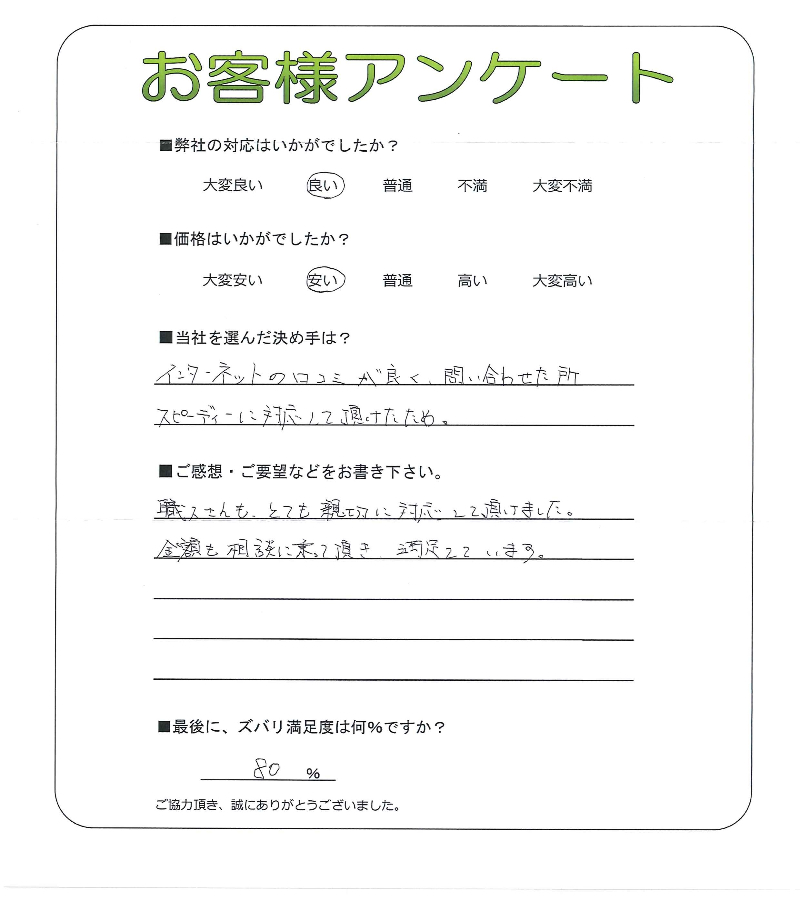 お客様アンケート
■弊社の対応はいかがでしたか？
大変良い 良い 普通 不満 大変不満
■価格はいかがでしたか？
大変安い 安い 普通 高い 大変高い
■当社を選んだ決め手は？
インターネットの口コミが良く、問い合わせた所
スピーディーに対応して頂けたため。
■ご感想・ご要望などをお書き下さい。
職人さんも、とても親切に対応して頂けました。
金額も相談に乗って頂き、満足しています。
■最後に、ズバリ満足度は何%ですか？
80 %
ご協力頂き、誠にありがとうございました。